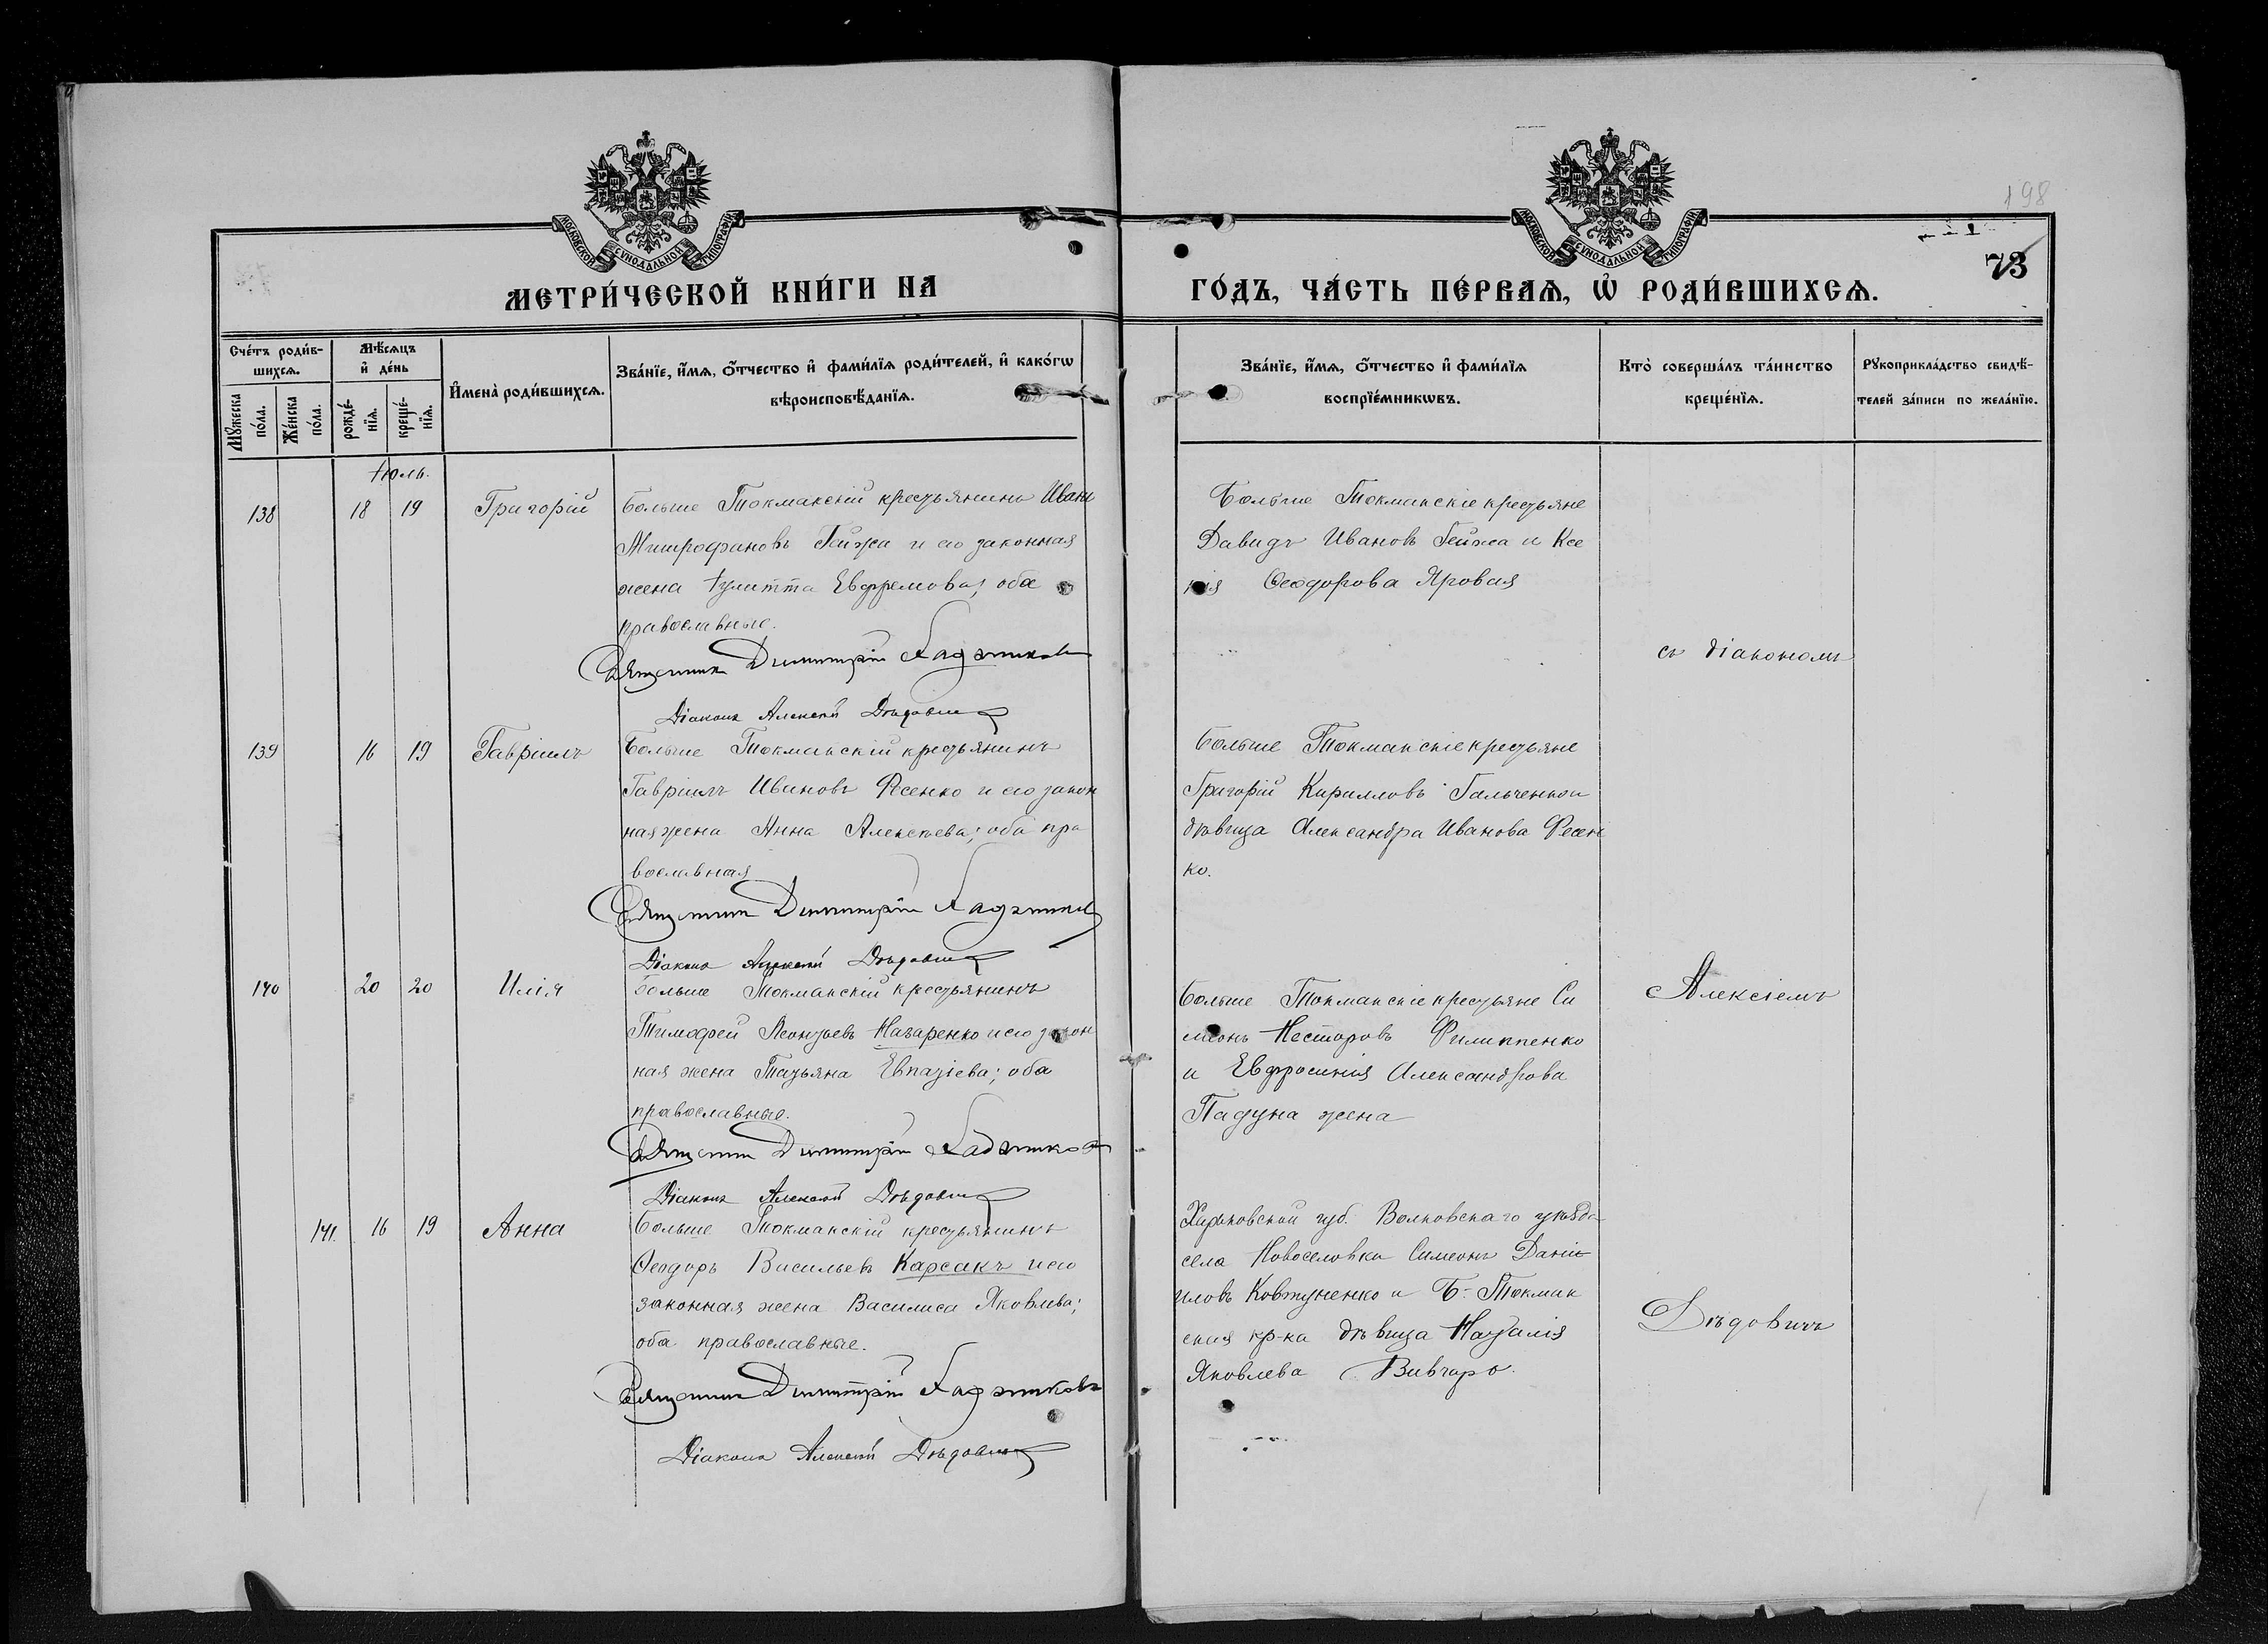 198
МОСКОВСКОЙ СѴНОДАЛЬНОЙ ТИПОГРАФІИ
МОСКОВСКОЙ СѴНОДАЛЬНОЙ ТИПОГРАФІИ
73
МЕТРИ́ЧЕСКОЙ КНИ́ГИ НА
ГО́ДЪ, ЧА́СТЬ ПЕ́РВАѦ, Ѽ РОДИ́ВШИХСѦ.
Сче́тъ роди́в-
шихсѧ.
Мѣ́сѧцъ
и҆ де́нь
Мꙋ́жеска
по́ла.
Же́нска
по́ла.
рожде́-
нїѧ.
креще́-
нїѧ.
И҆мена̀ роди́вшихсѧ.
Зва́нїе, и҆́мѧ, ѻ҆́тчество и҆ фами́лїѧ роди́телей, и҆ како́гѡ
вѣроисповѣ́данїѧ.
Зва́нїе, и҆́мѧ, ѻ҆́тчество и҆ фами́лїѧ
воспрїе́мникѡвъ.
Кто̀ соверша́лъ та́инство
креще́нїѧ.
Рꙋкоприкла́дство свидѣ́-
телей за́писи по жела́нїю.
Іюль.
138 18 19 Григорій
Больше Токмакскій крестьянинъ Иванъ
Митрофановъ Гейжа и его законная
жена Іулитта Евфремова; оба
православные.
Священникъ Димитрій
Діаконъ Алексѣй Дѣдовичъ
Больше Токмакскіе крестьяне
Давидъ Ивановъ Гейжа и Ксе
нія Ѳеодорова Яровая
съ діакономъ
139 16 19 Гавріилъ
Больше Токмакскій крестьянинъ
Гавріилъ Ивановъ Фесенко и его закон
ная жена Анна Алексѣева; оба пра
вославная
Священникъ Димитрій
Діаконъ Алексѣй Дѣдовичъ
Больше Токмакскіе крестьяне
Григорій Кирилловъ Гальченко и
дѣвица Александра Иванова Фесен
ко.
140 20 20 Илія
Больше Токмакскій крестьянинъ
Тимофей Леонтьевъ Назаренко и его закон
ная жена Татьяна Евпатіева; оба
православные.
Священникъ Димитрій
Діаконъ Алексѣй Дѣдовичъ
Больше Токмакскіе крестьяне Си
меонъ Несторовъ Филиппенко
и Евфросинія Александрова
Падуна жена
Алексіемъ
141. 16 19 Анна
Больше Токмакскій крестьянинъ
Ѳеодоръ Васильевъ Карсакъ и его
законная жена Василиса Яковлева;
оба православные.
Священникъ Димитрій
Діаконъ Алексѣй Дѣдовичъ
Харьковской губ. Волковскаго уѣзда
села Новоселовки Симеонъ Даніи
иловъ Ковтуненко и Б-Токмак
ская кр-ка дѣвица Наталія
Яковлева Вивчаро
Дѣдовичъ